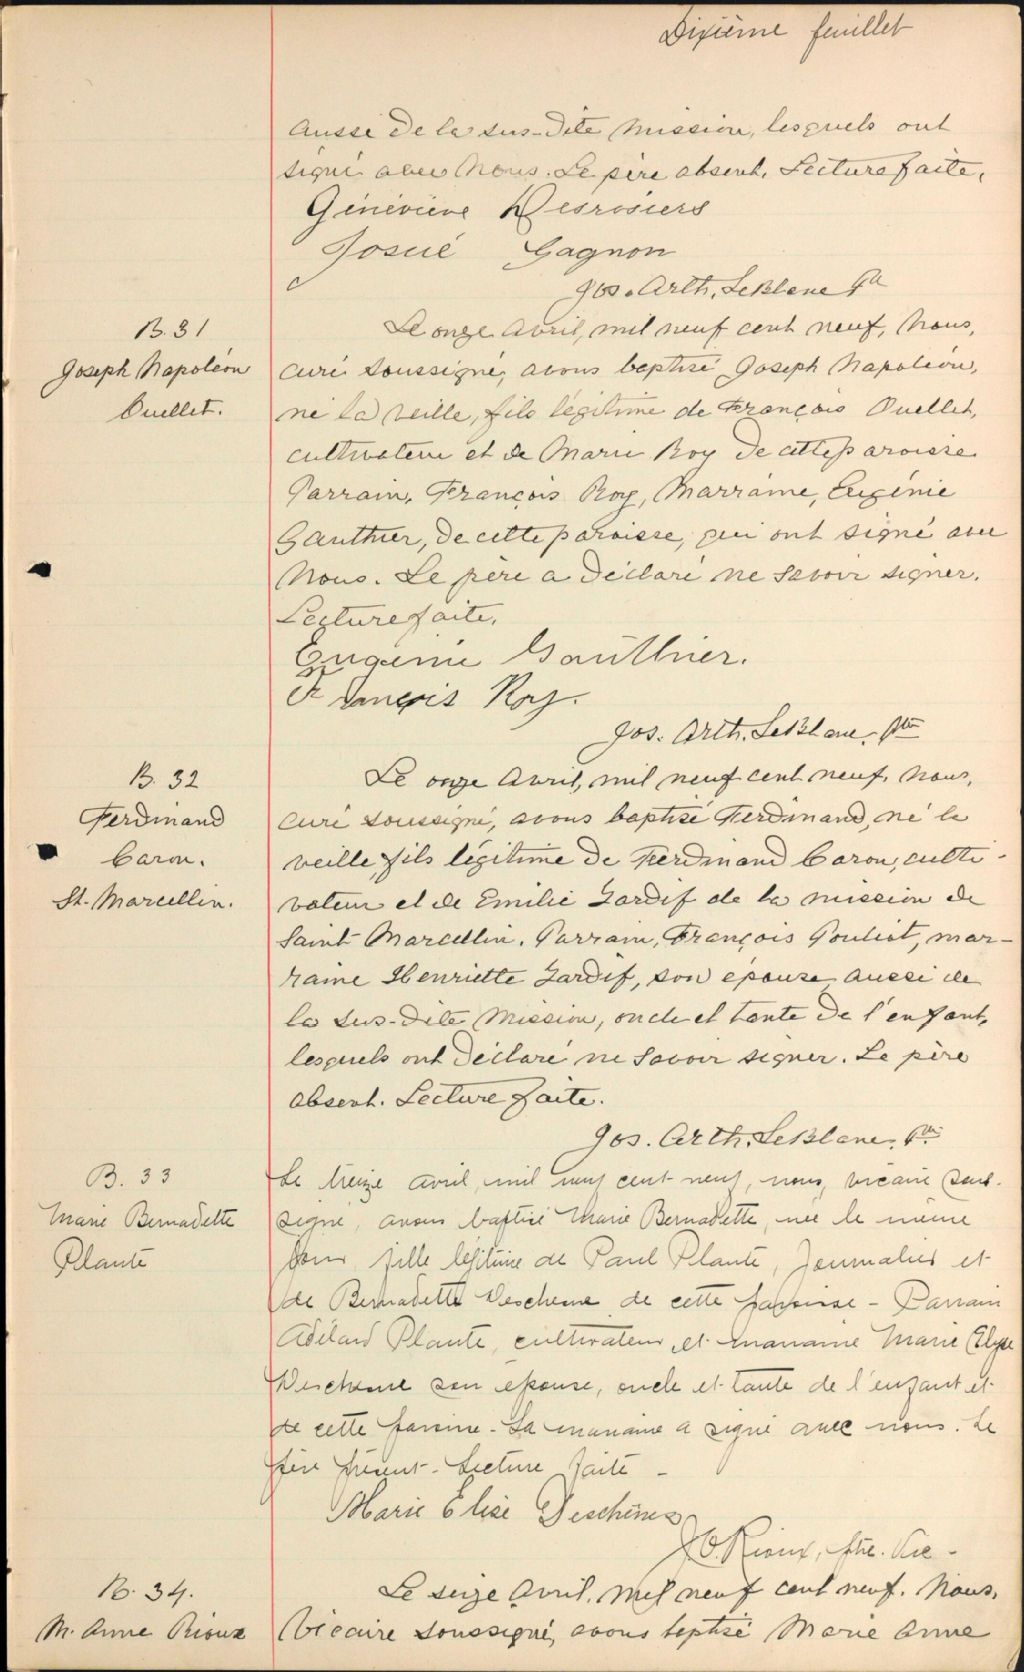 Dixième feuillet
Aussi de la sus-dite Mission, lesquels ont
signé avec Nous. Le père absent. Lecture faite.
Géneviève Desrosiers
Josué Gagnon
Jos. Arth. LeBlanc Ptr
B. 31
Joseph Napoléon
Ouellet.
Le onze Avril, mil neuf cent neuf, Nous,
curé soussigné, avons baptisé Joseph Napoléon,
né la veille, fils légitime de François Ouellet,
cultivateur et de Marie Roy de cette paroisse
Parrain, François Roy, Marraine, Eugénie
Gauthier, de cette paroisse, qui ont signé avec
Nous. Le père a déclaré ne savoir signer.
Lecture faite.
Eugénie Gauthier.
François Roy.
Jos. Arth. LeBlanc, Ptr
B. 32
Ferdinand
Caron.
St. Marcellin.
Le onze Avril, mil neuf cent neuf, Nous,
curé soussigné, avons baptisé Ferdinand, né la
veille, fils légitime de Ferdinand Caron, culti-
vateur et de Emilie Tardif de la mission de
Saint Marcellin. Parrain, François Pouliot, mar-
raine Henriette Tardif, son épouse aussi de
la sus-dite Mission, oncle et tante de l'enfant,
lesquels ont déclaré ne savoir signer. Le père
absent. Lecture faite.
Jos. Arth. LeBlanc, Ptr
B. 33
Marie Bernadette
Plante
Le treize avril, mil neuf cent neuf, nous, vicaire sous-
signé, avons baptisé Marie Bernadette, née le même
jour fille légitime de Paul Plante, journalier et
de Bernadette Deschene de cette paroisse - Parrain
Adélard Plante, cultivateur, et marraine Marie Elyse
Deschene son épouse, oncle et tante de l'enfant et
de cette paroisse - La marraine a signé avec nous. Le
père présent - Lecture faite -
Marie Elise Deschênes
Rioux, ptre. Vic -
B. 34.
M. Anne Rioux
Le seize Avril, mil neuf cent neuf. Nous,
Vicaire soussigné, avons baptisé Marie Anne